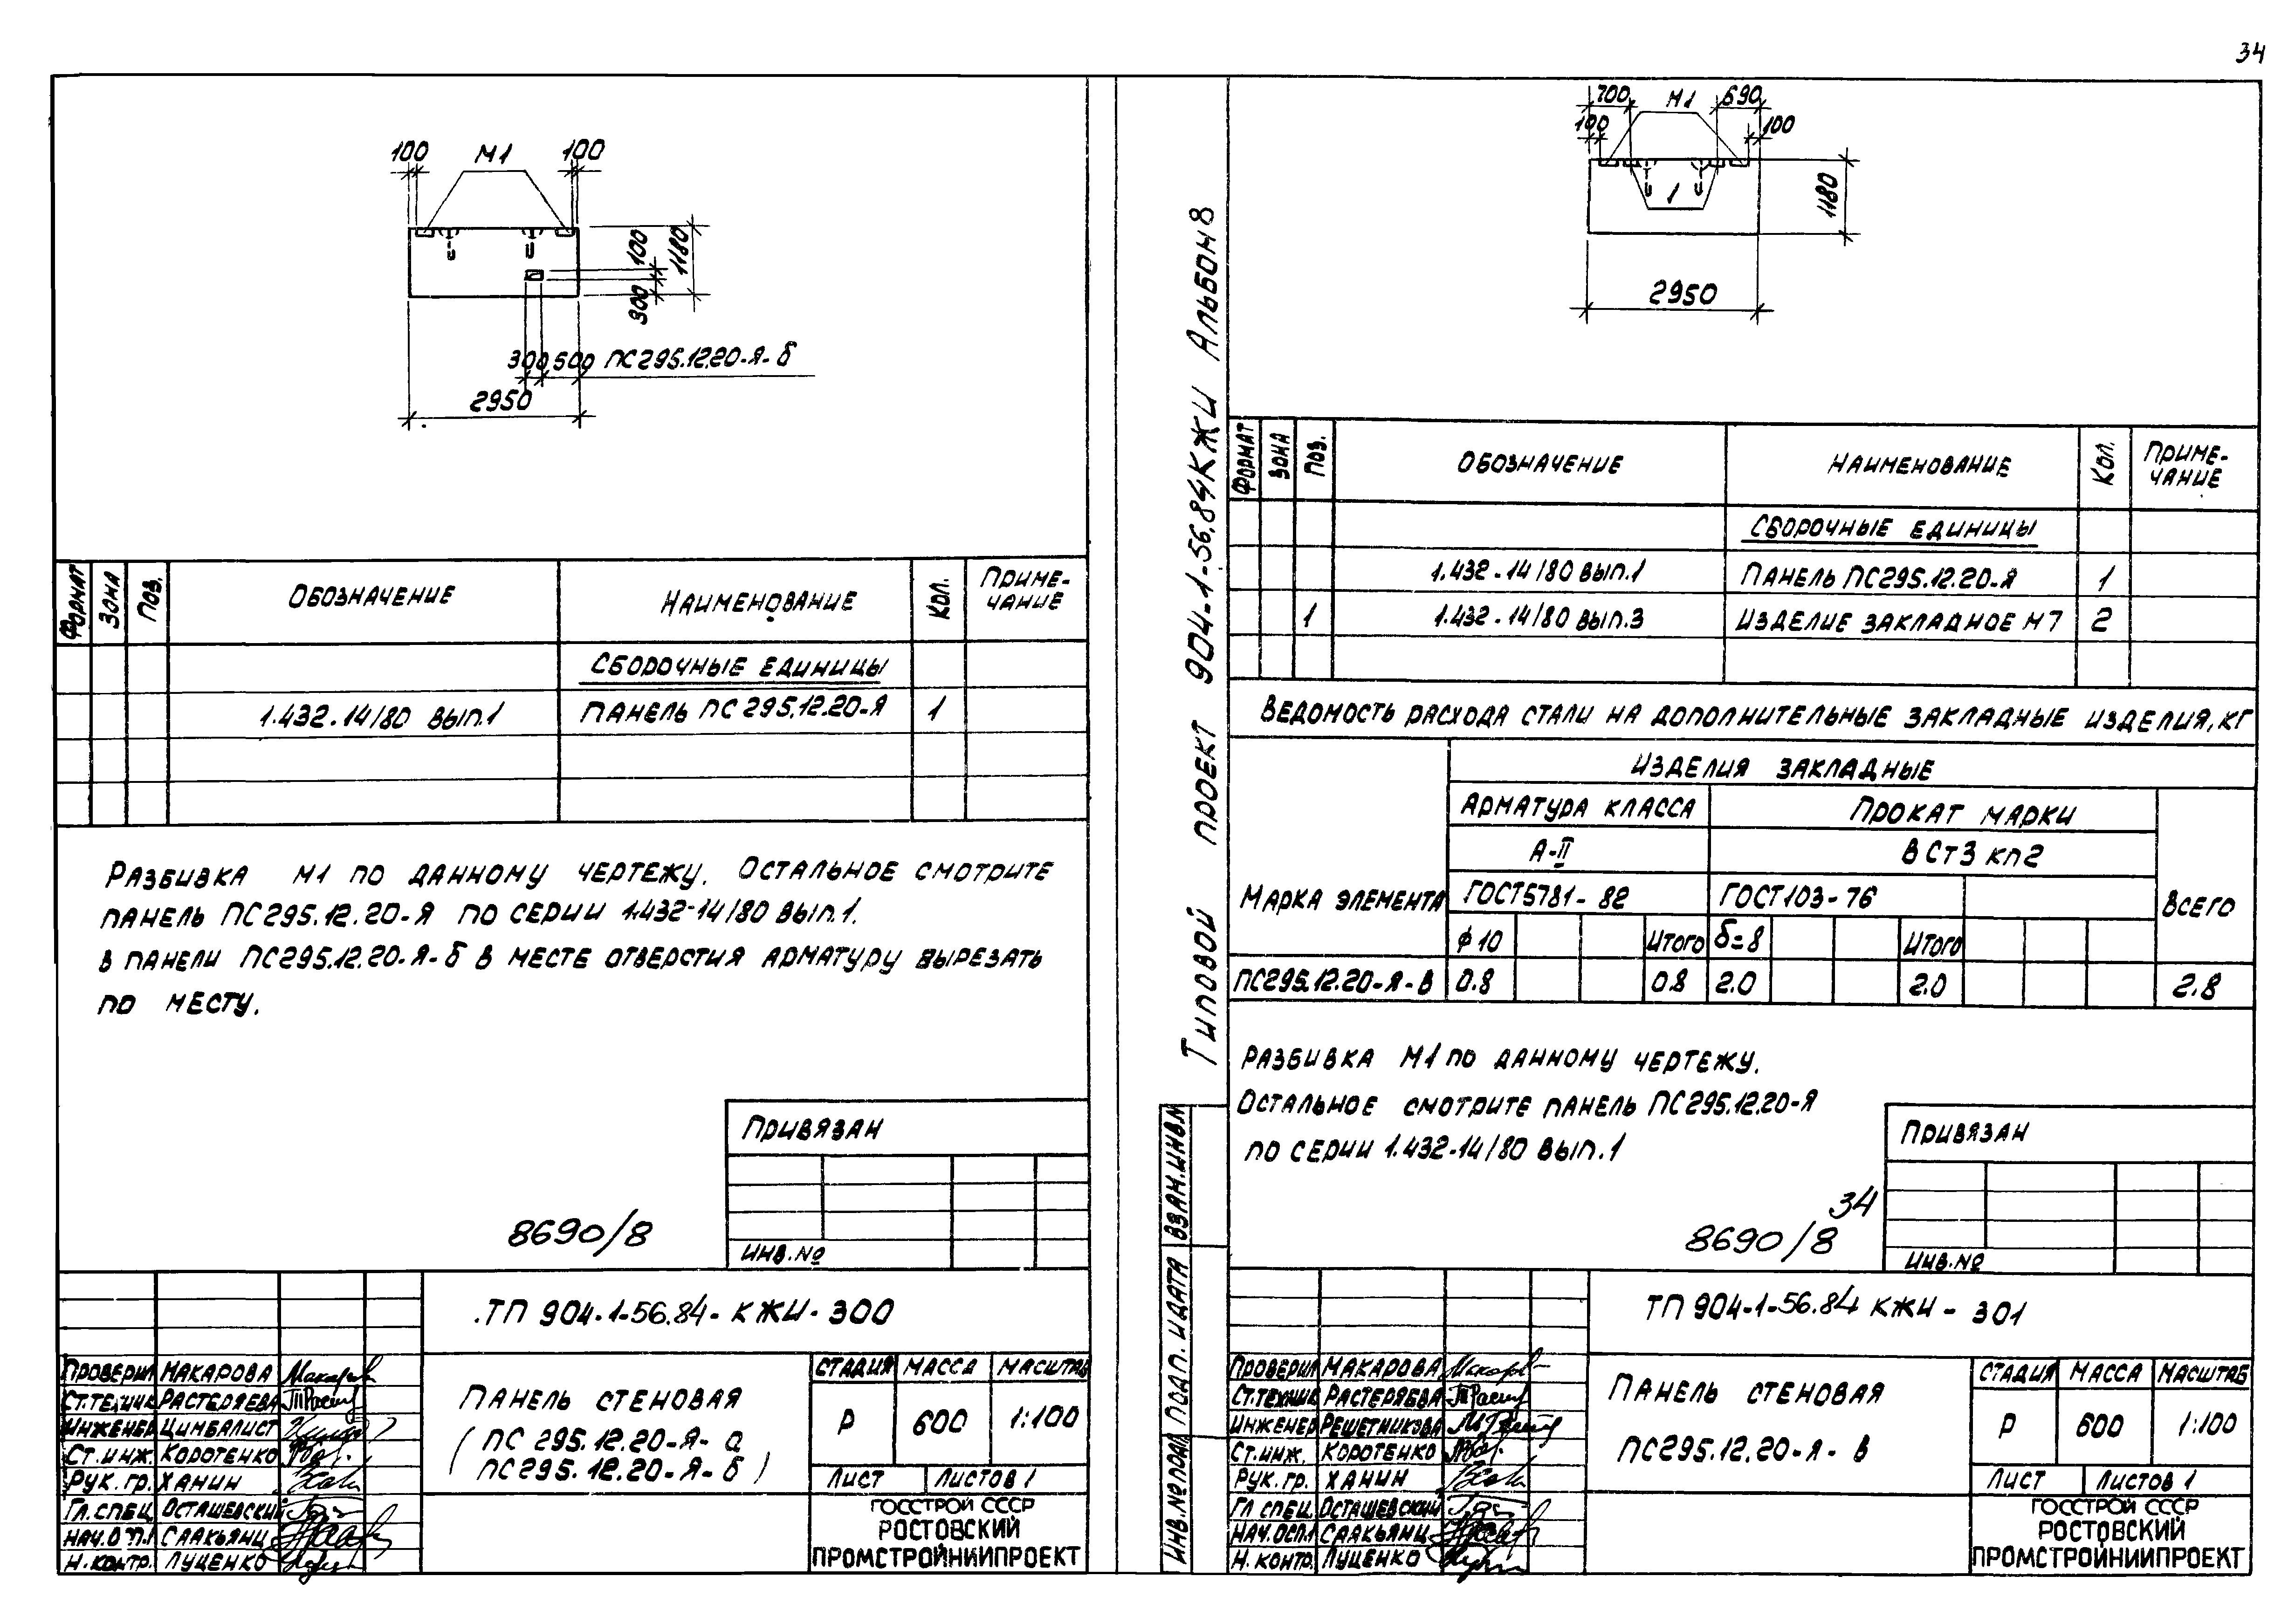 34
100 М1 100
100
1180
300
300 500 ПС295.12.20-Я-б
2950
Формат Зона Поз. Обозначение Наименование Кол. Приме-
чание
Сборочные единицы
1.432-14/80 вып.1 Панель ПС 295.12.20-Я 1
Разбивка М1 по данному чертежу. Остальное смотрите
панель ПС295.12.20-Я по серии 1.432-14/80 вып.1.
В панели ПС295.12.20-Я-б в месте отверстия арматуру вырезать
по месту.
Привязан
8690/8
Инв.№
ТП 904-1-56.84-КЖИ-300
Проверил Макарова
Ст.техник Растеряева
Инженер Цимбалист
Ст.инж. Коротенко
Рук. гр. Ханин
Гл.спец. Осташевский
Нач.О П.1 Саакьянц
Н.контр. Луценко
Панель стеновая
(ПС 295.12.20-Я-а
ПС295.12.20-Я-б)
Стадия Масса Масштаб
Р 600 1:100
Лист Листов 1
ГОССТРОЙ СССР
РОСТОВСКИЙ
ПРОМСТРОЙНИИПРОЕКТ
Типовой проект 904-1-56.84КЖИ Альбом 8
Инв.№подл. Подп. и дата Взам.инв.№
700 М1 690
100 100
1
1180
2950
Формат Зона Поз. Обозначение Наименование Кол. Приме-
чание
Сборочные единицы
1.432-14/80 вып.1 Панель ПС295.12.20-Я 1
1 1.432-14/80 вып.3 Изделие закладное М7 2
Ведомость расхода стали на дополнительные закладные изделия, кг
Марка элемента Изделия закладные
Арматура класса Прокат марки Всего
А-II ВСт3 кп2
ГОСТ5781-82 ГОСТ103-76
ф10 Итого б=8 Итого
ПС295.12.20-Я-в 0.8 0.8 2.0 2.0 2.8
Разбивка М1 по данному чертежу.
Остальное смотрите панель ПС295.12.20-Я
по серии 1.432-14/80 вып.1
Привязан
34
8690/8
Инв.№
ТП 904-1-56.84 КЖИ-301
Проверил Макарова
Ст.техник Растеряева
Инженер Решетникова
Ст.инж. Коротенко
Рук.гр. Ханин
Гл спец. Осташевский
Нач.ОСП.1 Саакьянц
Н.контр. Луценко
Панель стеновая
ПС295.12.20-Я-в
Стадия Масса Масштаб
Р 600 1:100
Лист Листов 1
ГОССТРОЙ СССР
РОСТОВСКИЙ
ПРОМСТРОЙНИИПРОЕКТ